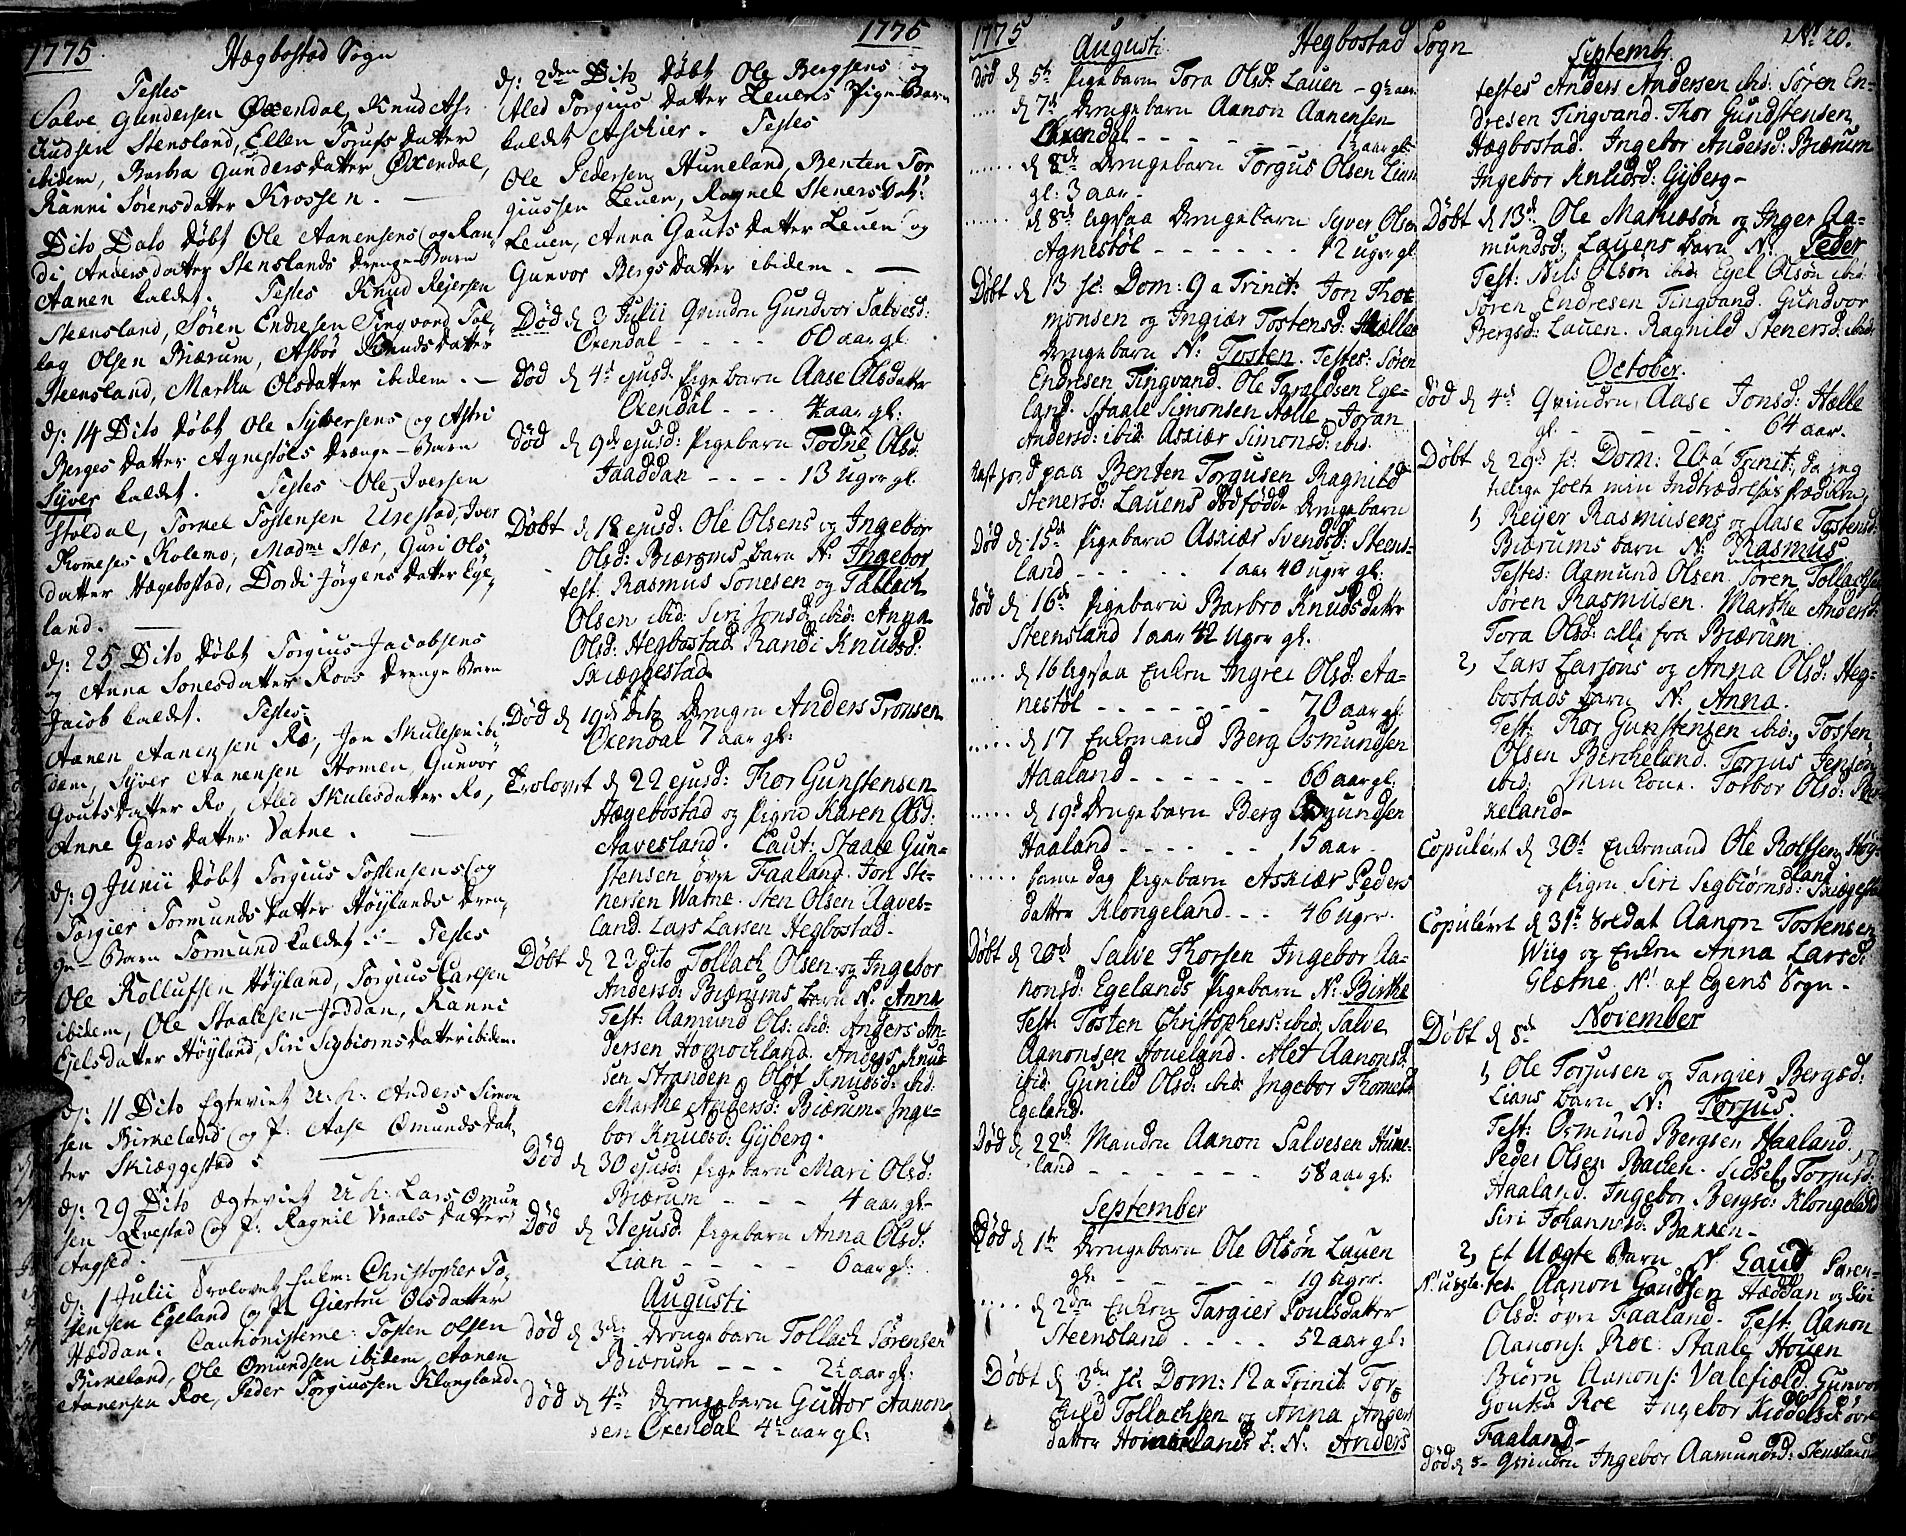 1775 Hægbostad Sogn
Testes
Salve Gundersen Øxendal, Knud As-
ludsen Stensland, Ellen Torufs datter
ibidem, Barbra Gundersdatter Øxendal,
Ranni Sørensdatter Krossen. —
Dito Dato Døbt Ole Aanensens og Ran-
di Andersdatter Stenslands Drenge-Barn
Aanen kaldet. Testes Knud Reiersen
Steensland, Søren Endresen Tingvard, Tal-
lag Olsen Biærum, Asbor Knudsdatter
Steensland, Martha Olsdatter ibidem. —
d: 14 Dito Døbt Ole Syversens og Astri
Bergesdatter Agnestøls Drænge-Barn
Syver kaldet. Testes Ole Iversen
Støldal, Tornel Tostensen Urestad, Iver
Thommeses Kolemo, Madme Stær, Guri Ols
datter Hægebostad, Dordi Jørgensdatter Ege-
land. —
d: 25 Dito Døbt Torgius Jacobsens
og Anna Sonesdatter Roes Drenge Barn
Jacob kaldet. Testes
Aanen Aanensen Ro, Jon Skulesen ibi-
dem, Syver Aanensen Homen, Gunvor
Goutsdatter Ro, Aled Skulesdatter Ro,
Anne Garsdatter Vatne. —
d: 9 Junii Døbt Torgius Tostensens og
Torgier Tormunds datter Høylands Dren-
ge-Barn Tormund kaldet :- Testes
Ole Rollufsen Høyland, Torgius Carlsen
ibidem, Ole Staalesen Joddan, Ranni
Ejelsdatter Høyland, Siri Sigbiørnsdatter ibidem.
d: 11 Dito Egteviet U: k: Anders Simon
sen Birkeland og P: Aase Omunds dat-
ter Skiæggestad :
d: 29 Dito Egteviet U k: Lars Omun
sen Qvestad og P: Ragnil Vraals datter
Aagsed.
d: 1 Julii Trolovet Enkm: Christopher To-
stensen Egeland og P: Giertru Olsdatter
Hæddan. Cautionisterne: Tosten Olsen
Birkeland, Ole Omundsen ibidem, Aanen
Aanensen Roe, Peder Torgiussen Klongland.
1775
d: 2den Dito Døbt Ole Bergsens og
Aled Torgius datter Leuens Pige-Barn
kaldet Aschier. Testes
Ole Pedersen Huneland, Benten Tor
giussen Leuen, Ragnel Steners dat:
Leuen, Anna Gauts datter Leuen og
Gunvor Bergsdatter ibidem. —
Død d 3 Julii Qvinden Gundvor Salvesd:
Oxendal - - - - 60 aar gl:
Død d 4d ejusd: Pigebarn Aase Olsdatter
Oxendal - - - 4 aar gl:
Død d 9d ejusd: Pigebarn Todne Olsd:
Jaaddan - - - - 13 Uger gl:
Døbt d 18 ejusd: Ole Olsens og Ingebor
Olsd: Biærums barn N: Ingebor
test: Rasmus Sonesen og Tallach
Olsen ibid: Siri Jonsd: ibid: Anna
Olsd: Hegbostad Randi Knudsd:
Skiæggestad
Død d 19d dito Drengen Anders Tronsen
Oxendal 7 aar gl:
Trolovet d 22 ejusd: Thor Gunstensen
Hægebostad og Pigen Karen Olsd:
Aavesland. Caut: Staale Gun-
stensen øvre Faaland. Jon Ste-
nersen Watne. Sten Olsen Aaves-
land. Lars Larsen Hegbostad.
Døbt d 23 dito Tollach Olsen og Ingebor
Andersd: Biærums barn N: Anna
Test: Aamund Ols: ibid: Anders An-
dersen Homochland. Anders Knud
sen Stranden. Oløf Knudsd: ibid:
Marthe Andersd: Biærum. Inge-
bor Knudsd: Gyberg.
Død d 30 ejusd: Pigebarn Mari Olsd:
Biærum - - - 4 aar gl-
Død d 31 ejusd: Pigebarn Anna Olsd:
Lian - - - - 6 aar gl:
Augusti
Død d 3de Drengebarn Tollach Sørensen
Biærum - - - 2½ aar gl:
Død d 4d Drengebarn Guttor Aanon-
sen Oxendal 4½ aar gl:
1775 Augusti Hegbostad
Død d 5te Pigebarn Tora Olsd: Lauen - 9½ aar
..... d 7d Drengebarn Aanon Aanensen
Oxendal - - - - - ½ aar gl:
...... d 8de Drengebarn Torgus Olsen Lian
gl: 3 aar -
...... d 8de ligesaa Drengebarn Syver Olsen
Agnestøl - - - - - - 12 uger gl:
Døbt d 13 sc: Dom: 9 a Trinit: Jon Thor
monsen og Ingiær Tostensd: Hælles
Drengebarn N: Tosten. Testes: Søren
Endresen Tingvand. Ole Taraldsen Ege-
land. Staale Simonsen Helle Joran
Andersd: ibid: Askiær Simonsd: ibid:
Kast jord paa Benten Torgusen Ragnild
Stenersd: Lauens dødfødde Drengebarn
Død d 15de Pigebarn Askiær Svendsd: Steens-
land - - - - - 1 aar 40 uger gl:
Død d 16de Pigebarn Barbro Knudsdatter
Steensland 1 aar 42 Uger gl:
..... d 16 ligesaa Enken Ingrei Olsd: Aa-
nestøl - - - - - - - 70 aar gl:
..... d 17 Enkemand Berg Osmundsen
Haaland - - - - - - 66 aar gl:
..... d 19d Drengebarn Berg Osmundsen
Haaland - - - - - 15 aar -
...... samme dag Pigebarn Askiær Peders
datter Klongeland - - - 46 uger.
Døbt d 20de Salve Thorsen Ingebor Aa-
nonsd: Egelands Pigebarn N: Birthe
Test: Tosten Christophers: ibid: Salve
Aanonsen Houeland. Alet Aanonsd:
ibid: Gunild Olsd: ibid: Ingebor Thomesd:
Egeland.
Død d 22de Manden Aanon Salvesen Hune-
land - - - - - - - - 58 aar gl:
September
Død d 1te Drengebarn Ole Olsøn Lauen
gl: - - - - - - 19 uger.
...... d 2den Enken Targier Poulsdatter
Steensland - - - - 52 aar gl:
Døbt d 3de sc: Dom: 12 a Trinit: Tor-
kild Tollachsen og Anna Anders
datter Homerlands b: N: Anders
Sogn Septembr. No 20.
testes Anders Andersen ibid: Søren En-
dresen Tingvand. Thor Gundstensen
Hægbostad. Ingebor Andersd: Biærum
Ingebor Knudsd: Gyberg-
Døbt d 13d Ole Mathiesøn og Inger Aa-
mundsd: Lauens barn N: Peder
Test: Nils Olsøn ibid: Egel Olsøn ibid:
Søren Endresen Tingvand. Gundvor
Bergsd: Lauen. Ragnild Stenersd: ibid:
October.
Død d 4d Qvinden Aase Jonsd: Hælle
gl: - - - - - - - 64 aar.
Døbt d 29d sc: Dom: 20 a Trinit: da jeg
tillige holte min Indtrædelses Prædiken,
1, Reyer Rasmusens og Aase Tostensd:
Biærums barn N: Rasmus
Testes: Aamund Olsen. Søren Tollachsen
Søren Rasmusen. Marthe Andersd:
Tora Olsd: alle fra Biærum.
2, Lars Larsøns og Anna Olsd: Heg-
bostads barn N: Anna.
Test: Thor Gunstensen ibid: Tosten
Olsen Bircheland. Torjus Jensøn
ibid: Min kone. Torbor Olsd:
keland-
Copuleret d 30d Enkemand Ole Rolfsen Høy-
land
og Pigen Siri Segbiørnsd: Skiæggestad
Copuleret d 31te Soldat Aanon Tostensen
Wiig og Enken Anna Larsd:
Glætne N: af Egens Sogn-
November
Døbt d 5de
1, Ole Torjusen og Targier Bergsd:
Lians barn N: Torjus.
Test: Osmund Bergsen Haaland.
Peder Olsen Backen. Sidsel Torjusd:
Haaland. Ingebor Bergsd: Klongeland
Siri Johannesd: Bakken-
2, Et Uægte Barn N: Gaud Paren-
tes. Aanon Gaudsen Hæddan og Siri
Olsd: øvre Faaland. Test: Aanon
Aanons: Roe. Staale Houen
Biørn Aanons: Valefield. Gunvor
Goutsd: Roe Ingebor Kiddelsd: øvre
Faaland-
Død d 5- Qvinden Ingebor Aamundsd: Stensland